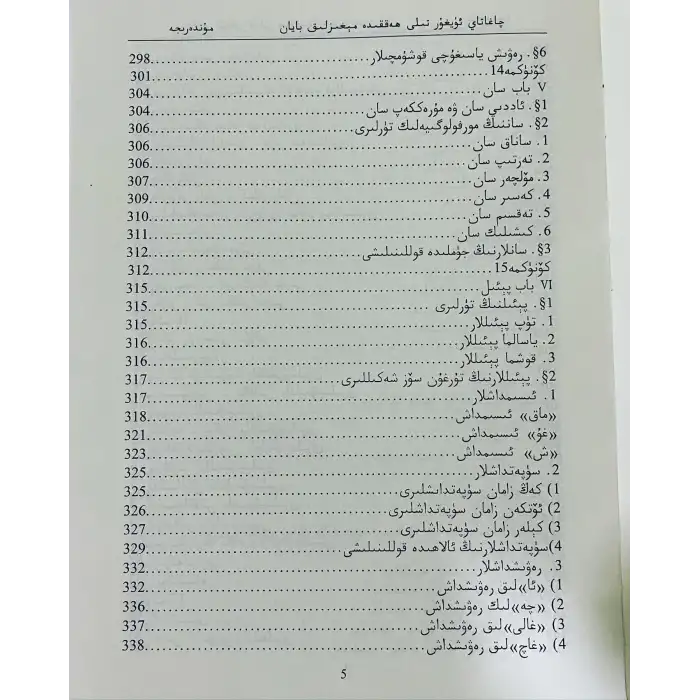 چاغاتاي ئۇيغۇر تىلى ھەققىدە مېغىزلىق بايان مۇندەرىجە
§6. رەۋىش ياسىغۇچى قوشۇمچىلار..............................298
كۆنۈكمە14..............................301
V باب سان..............................304
§1. ئاددىي سان ۋە مۇرەككەپ سان..............................304
§2. ساننىڭ مورفولوگىيەلىك تۈرلىرى..............................306
1. ساناق سان..............................306
2. تەرتىپ سان..............................306
3. مۆلچەر سان..............................307
4. كەسىر سان..............................309
5. تەقسىم سان..............................310
6. كىشىلىك سان..............................311
§3. سانلارنىڭ جۈملىدە قوللىنىلىشى..............................312
كۆنۈكمە15..............................312
VI باب پېئىل..............................315
§1. پېئىلنىڭ تۈرلىرى..............................315
1. تۈپ پېئىللار..............................315
2. ياسالما پېئىللار..............................316
3. قوشما پېئىللار..............................316
§2. پېئىللارنىڭ تۇرغۇن سۆز شەكىللىرى..............................317
1. ئىسىمداشلار..............................317
«ماق» ئىسىمداش..............................318
«غۇ» ئىسىمداش..............................321
«ش» ئىسىمداش..............................323
2. سۈپەتداشلار..............................325
1) كەڭ زامان سۈپەتداشلىرى..............................325
2) ئۆتكەن زامان سۈپەتداشلىرى..............................326
3) كېلەر زامان سۈپەتداشلىرى..............................327
4)سۈپەتداشلارنىڭ ئالاھىدە قوللىنىلىشى..............................329
3. رەۋىشداشلار..............................332
1) «ئا»لىق رەۋىشداش..............................332
2) «چە»لىك رەۋىشداش..............................336
3) «غالى»لىق رەۋىشداش..............................337
4) «غاچ»لىق رەۋىشداش..............................338
5